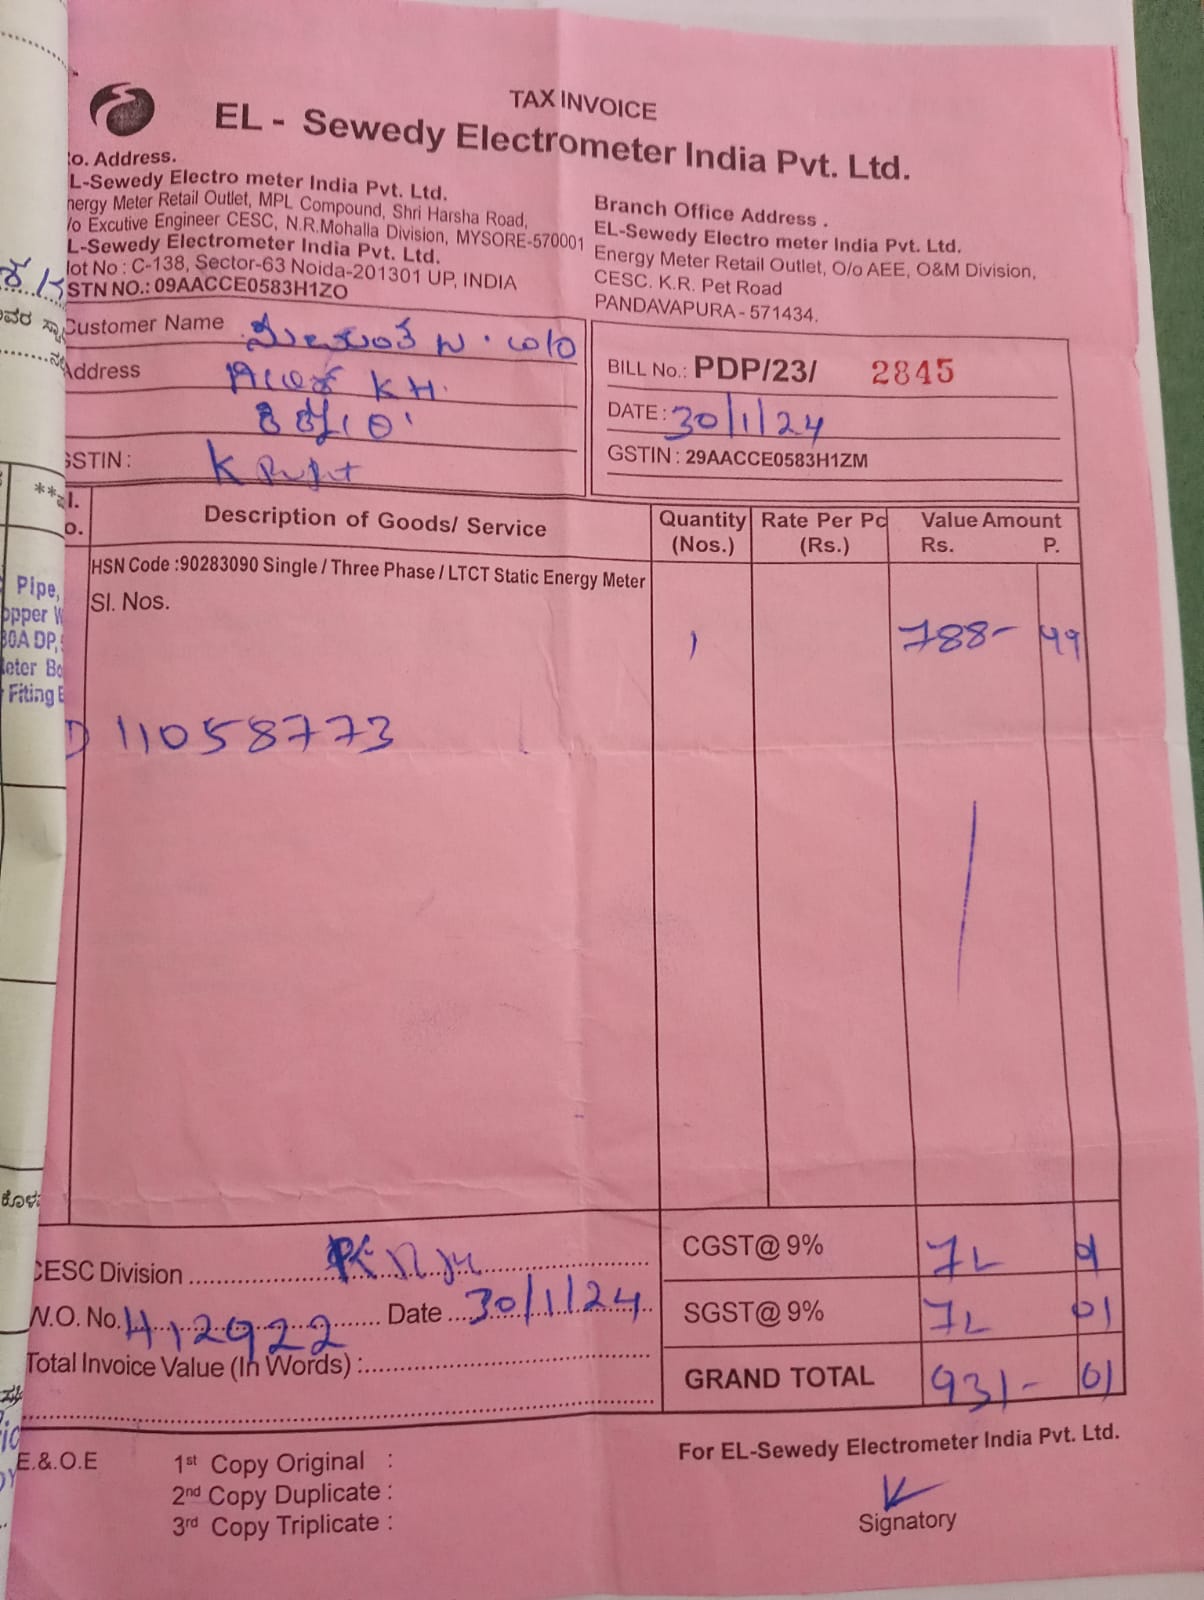 TAX INVOICE
EL - Sewedy Electrometer India Pvt. Ltd.
o. Address.
L-Sewedy Electro meter India Pvt. Ltd.
nergy Meter Retail Outlet, MPL Compound, Shri Harsha Road,
/o Excutive Engineer CESC, N.R.Mohalla Division, MYSORE-570001
L-Sewedy Electrometer India Pvt. Ltd.
lot No : C-138, Sector-63 Noida-201301 UP, INDIA
STN NO.: 09AACCE0583H1ZO
Branch Office Address .
EL-Sewedy Electro meter India Pvt. Ltd.
Energy Meter Retail Outlet, O/o AEE, O&M Division,
CESC. K.R. Pet Road
PANDAVAPURA - 571434.
Customer Name
Address KH.
GSTIN :
BILL No.: PDP/23/ 2845
DATE : 30/1/24
GSTIN : 29AACCE0583H1ZM
l. Description of Goods/ Service Quantity Rate Per Pc Value Amount
o. (Nos.) (Rs.) Rs. P.
HSN Code :90283090 Single / Three Phase / LTCT Static Energy Meter
Sl. Nos.
1 788- 99
11058773
Pipe,
opper W
30A DP,
eter Bo
Fiting E
CESC Division
CGST@ 9% 71
W.O. No. 412922 Date 30/1/24
SGST@ 9% 71 01
Total Invoice Value (In Words) :
GRAND TOTAL 931- 01
For EL-Sewedy Electrometer India Pvt. Ltd.
E.&.O.E 1st Copy Original :
2nd Copy Duplicate :
3rd Copy Triplicate :
Signatory